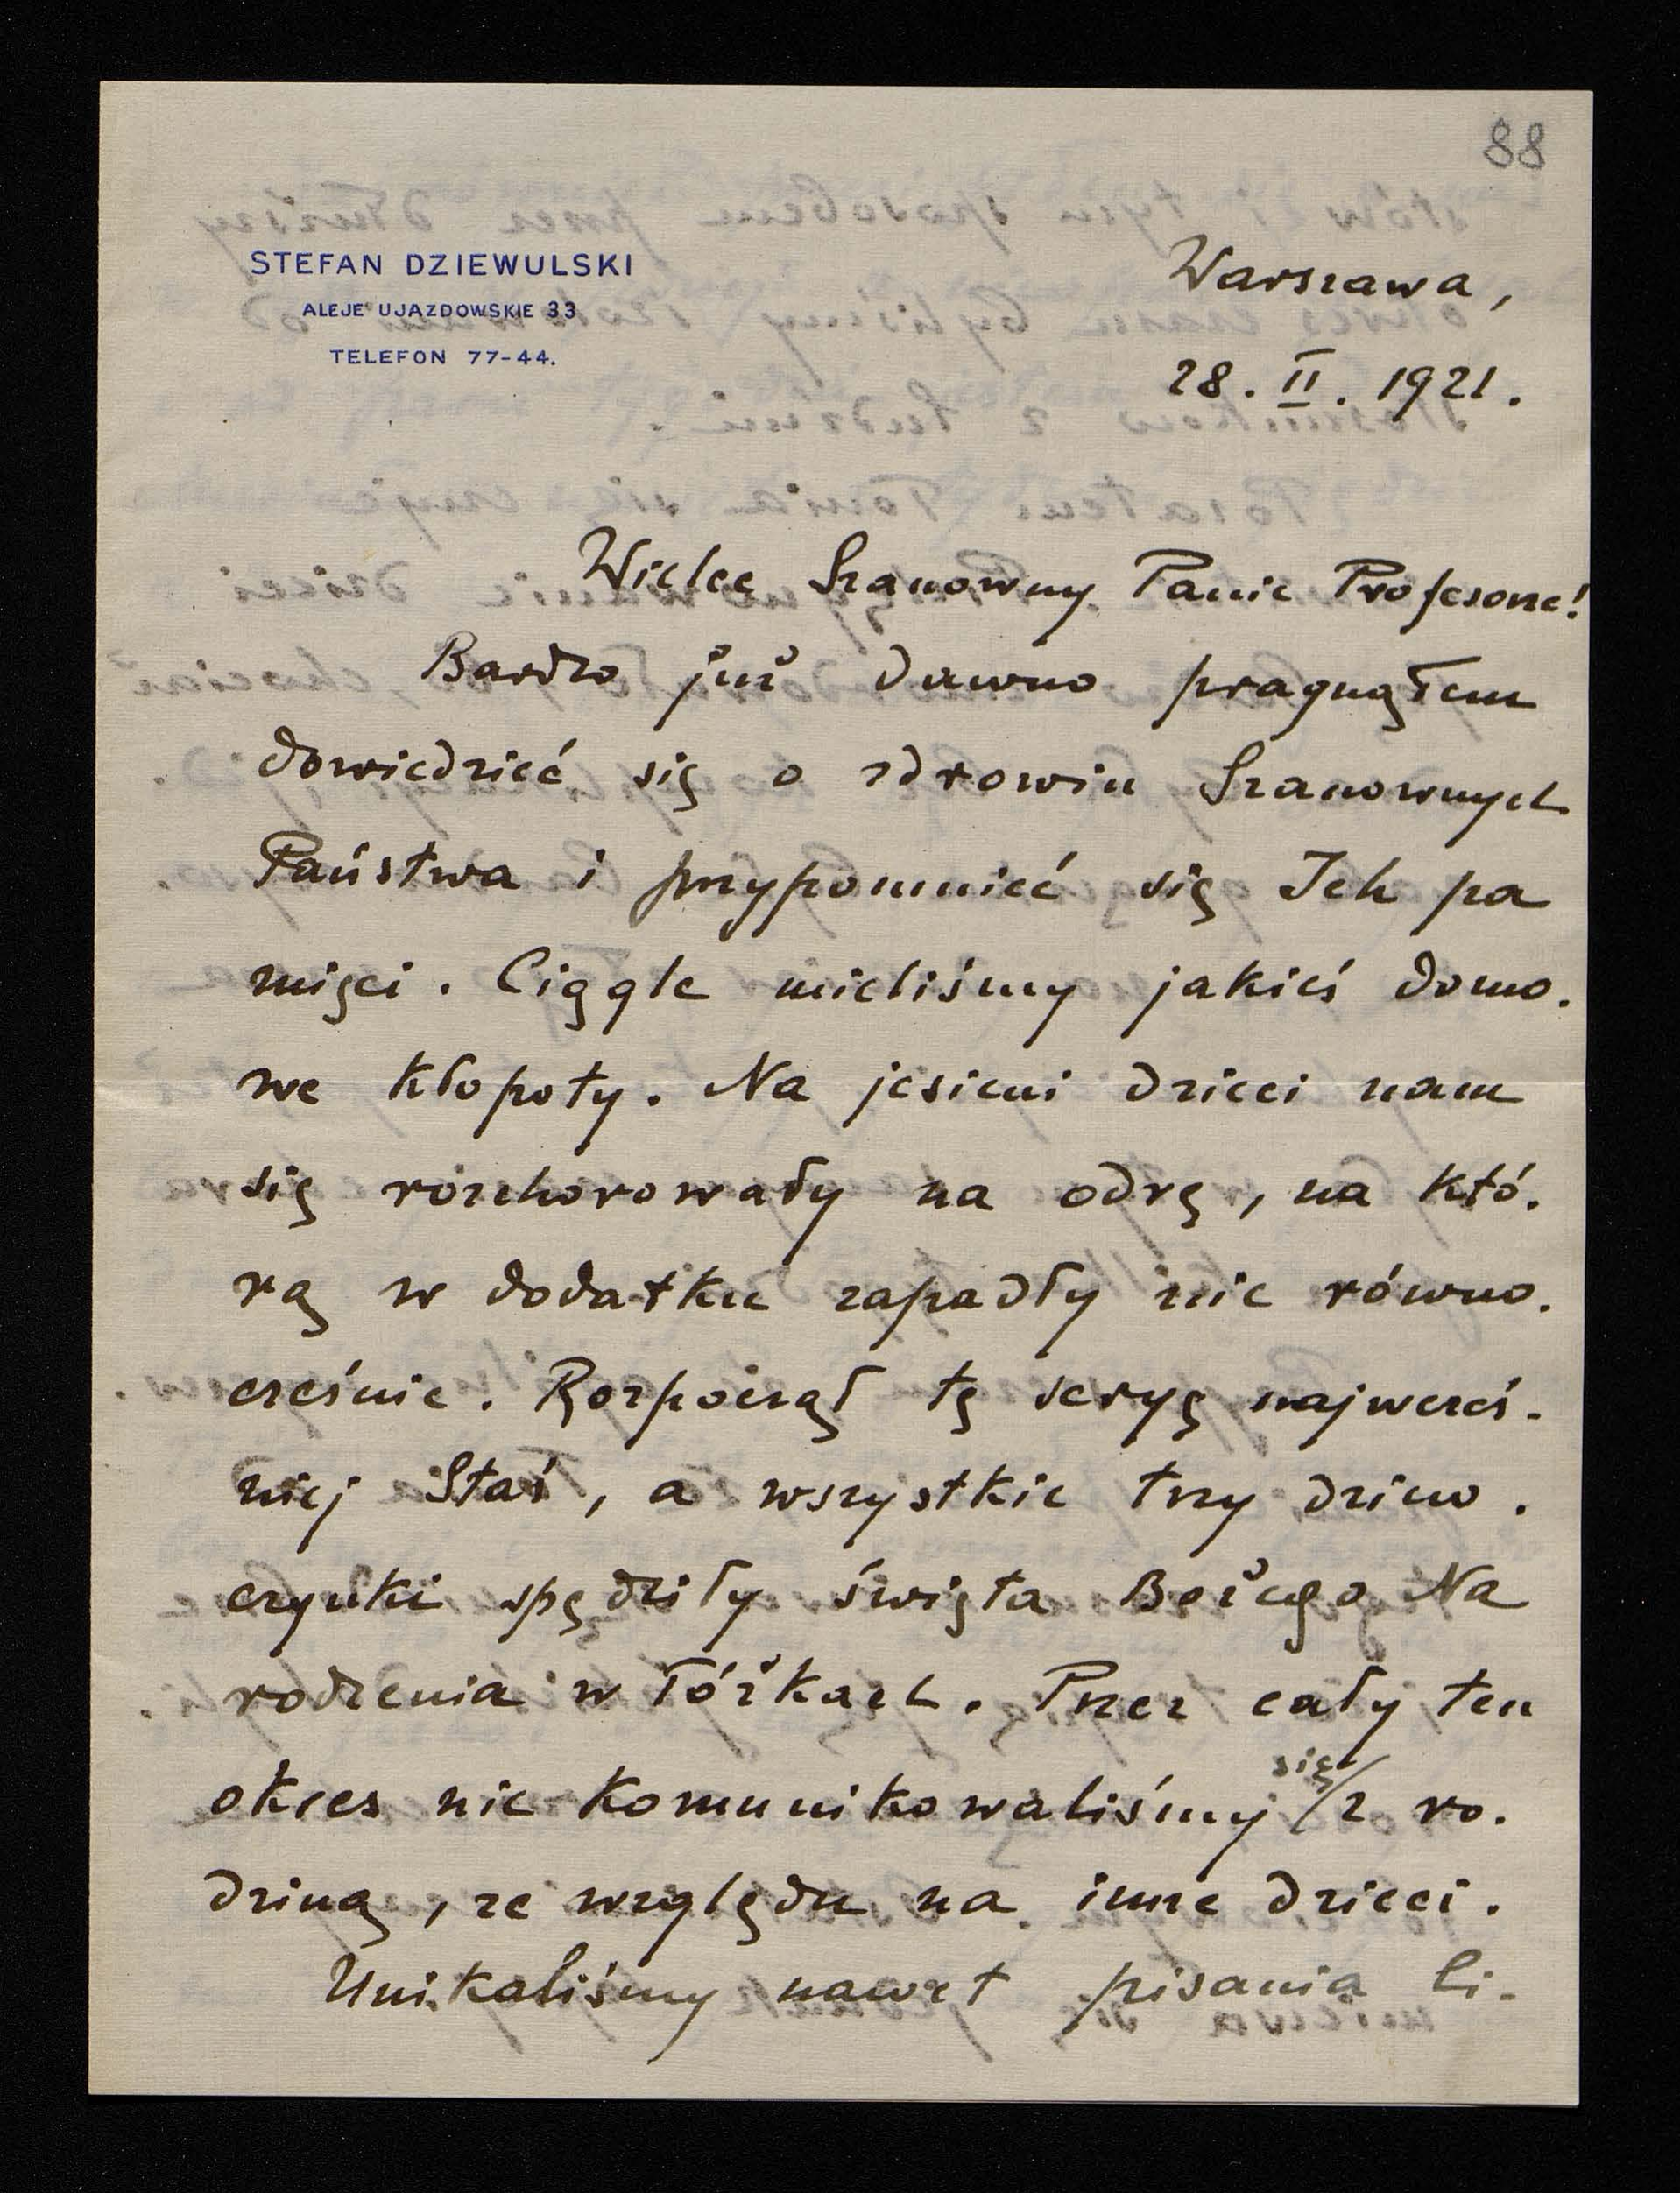 88
STEFAN DZIEWULSKI
ALEJE UJAZDOWSKIE 33
TELEFON 77-44.
Warszawa,
28. II. 1921.
Wielce Szanowny Panie Profesorze!
Bardzo już dawno pragnąłem
dowiedzieć się o zdrowiu Szanownych
Państwa i przypomnieć się Ich pa
mięci. Ciągle mieliśmy jakieś domo-
we kłopoty. Na jesieni dzieci nam
się rozchorowały na odrę, na któ-
rą w dodatku zapadły nie równo-
cześnie. Rozpoczął tę seryę najwcześ-
niej Staś, a wszystkie trzy dziew-
czynki spędziły święta Bożego Na
rodzenia w łóżkach. Przez cały ten
okres nie komunikowaliśmy się z ro-
dziną, ze względu na inne dzieci.
Unikaliśmy nawet pisania li-